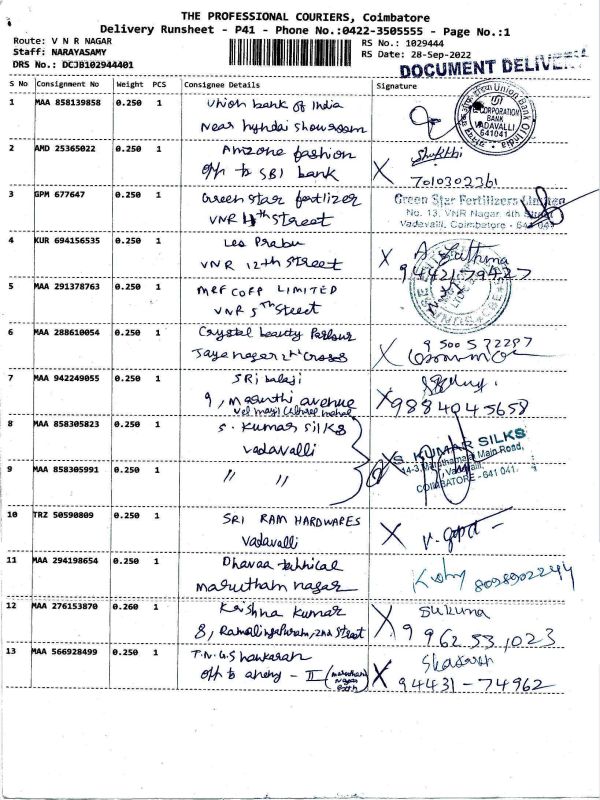 THE PROFESSIONAL COURIERS, Coimbatore
Delivery Runsheet - P41 - Phone No.:0422-3505555 - Page No.:1
Route: V N R NAGAR
RS No.: 1029444
Staff: NARAYASAMY
RS Date: 28-Sep-2022
DRS No.: DCJB102944401
DOCUMENT DELIVERY
S No Consignment No Weight PCS Consignee Details Signature
1 MAA 858139858 0.250 1 Union bank of India
Near hyndai showroom
Union Bank Of India
CORPORATION
BANK
VADAVALLI
641041
2 AMD 25365022 0.250 1 Amzone fashion
opp to SBI bank
Shakthi
7010302361
3 GPM 677647 0.250 1 Green star fertilizer
VNR 4th street
Green Star Fertilizers Limited
No. 13, VNR Nagar, 4th Street
Vadavelli, Coimbatore - 641 041
4 KUR 694156535 0.250 1 Leo Prabu
VNR 12th street
94421-79427
5 MAA 291378763 0.250 1 MRF CORP LIMITED
VNR 5th Street
6 MAA 288610054 0.250 1 Crystal beauty Parlour
Jaya nagar 2nd Cross
9 500 5 72297
7 MAA 942249055 0.250 1 SRi balaji
9, Maruthi avenue
9884045658
8 MAA 858305823 0.250 1 S. Kumar silks
Vadavalli
S. KUMAR SILKS
Main Road,
Vadavalli,
COIMBATORE - 641 041.
9 MAA 858305991 0.250 1 " "
10 TRZ 50590809 0.250 1 SRI RAM HARDWARES
Vadavalli
11 MAA 294198654 0.250 1 Dhavaa
marutham nagar
12 MAA 276153870 0.260 1 Krishna Kumar
8, Ramalingapuram, 2nd street
Sukuna
99625 53,023
13 MAA 566928499 0.250 1 T.N.G. Shankaran
94431-74962